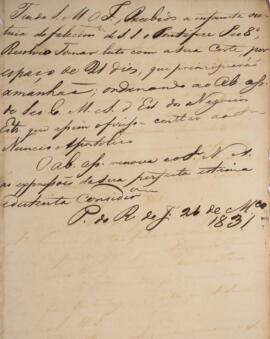 Tendo S. M. O I. Recebido a infausta no
ticia do falecim.to de S. S. o Pontifice Pio 8.º
Resolveo Tomar luto com a Sua Corte, por
espaço de 21 dias, que principiará
amanhãa; ordenando ao Ab. ass.
do seo C. M. e S. d' Est. dos Negocios
Estr. que assim o fizesse constar ao
Nuncio Apostolico
O ab. ass. renova ao S. N. A.
as expressões da sua perfeita estima
e distincta consider.am
P. do R. de J. 26 de M.ço
1831